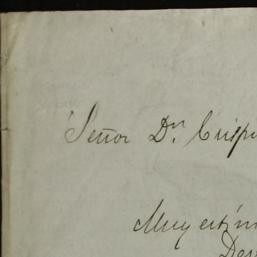 Señor Dn. Crisp
Muy estim